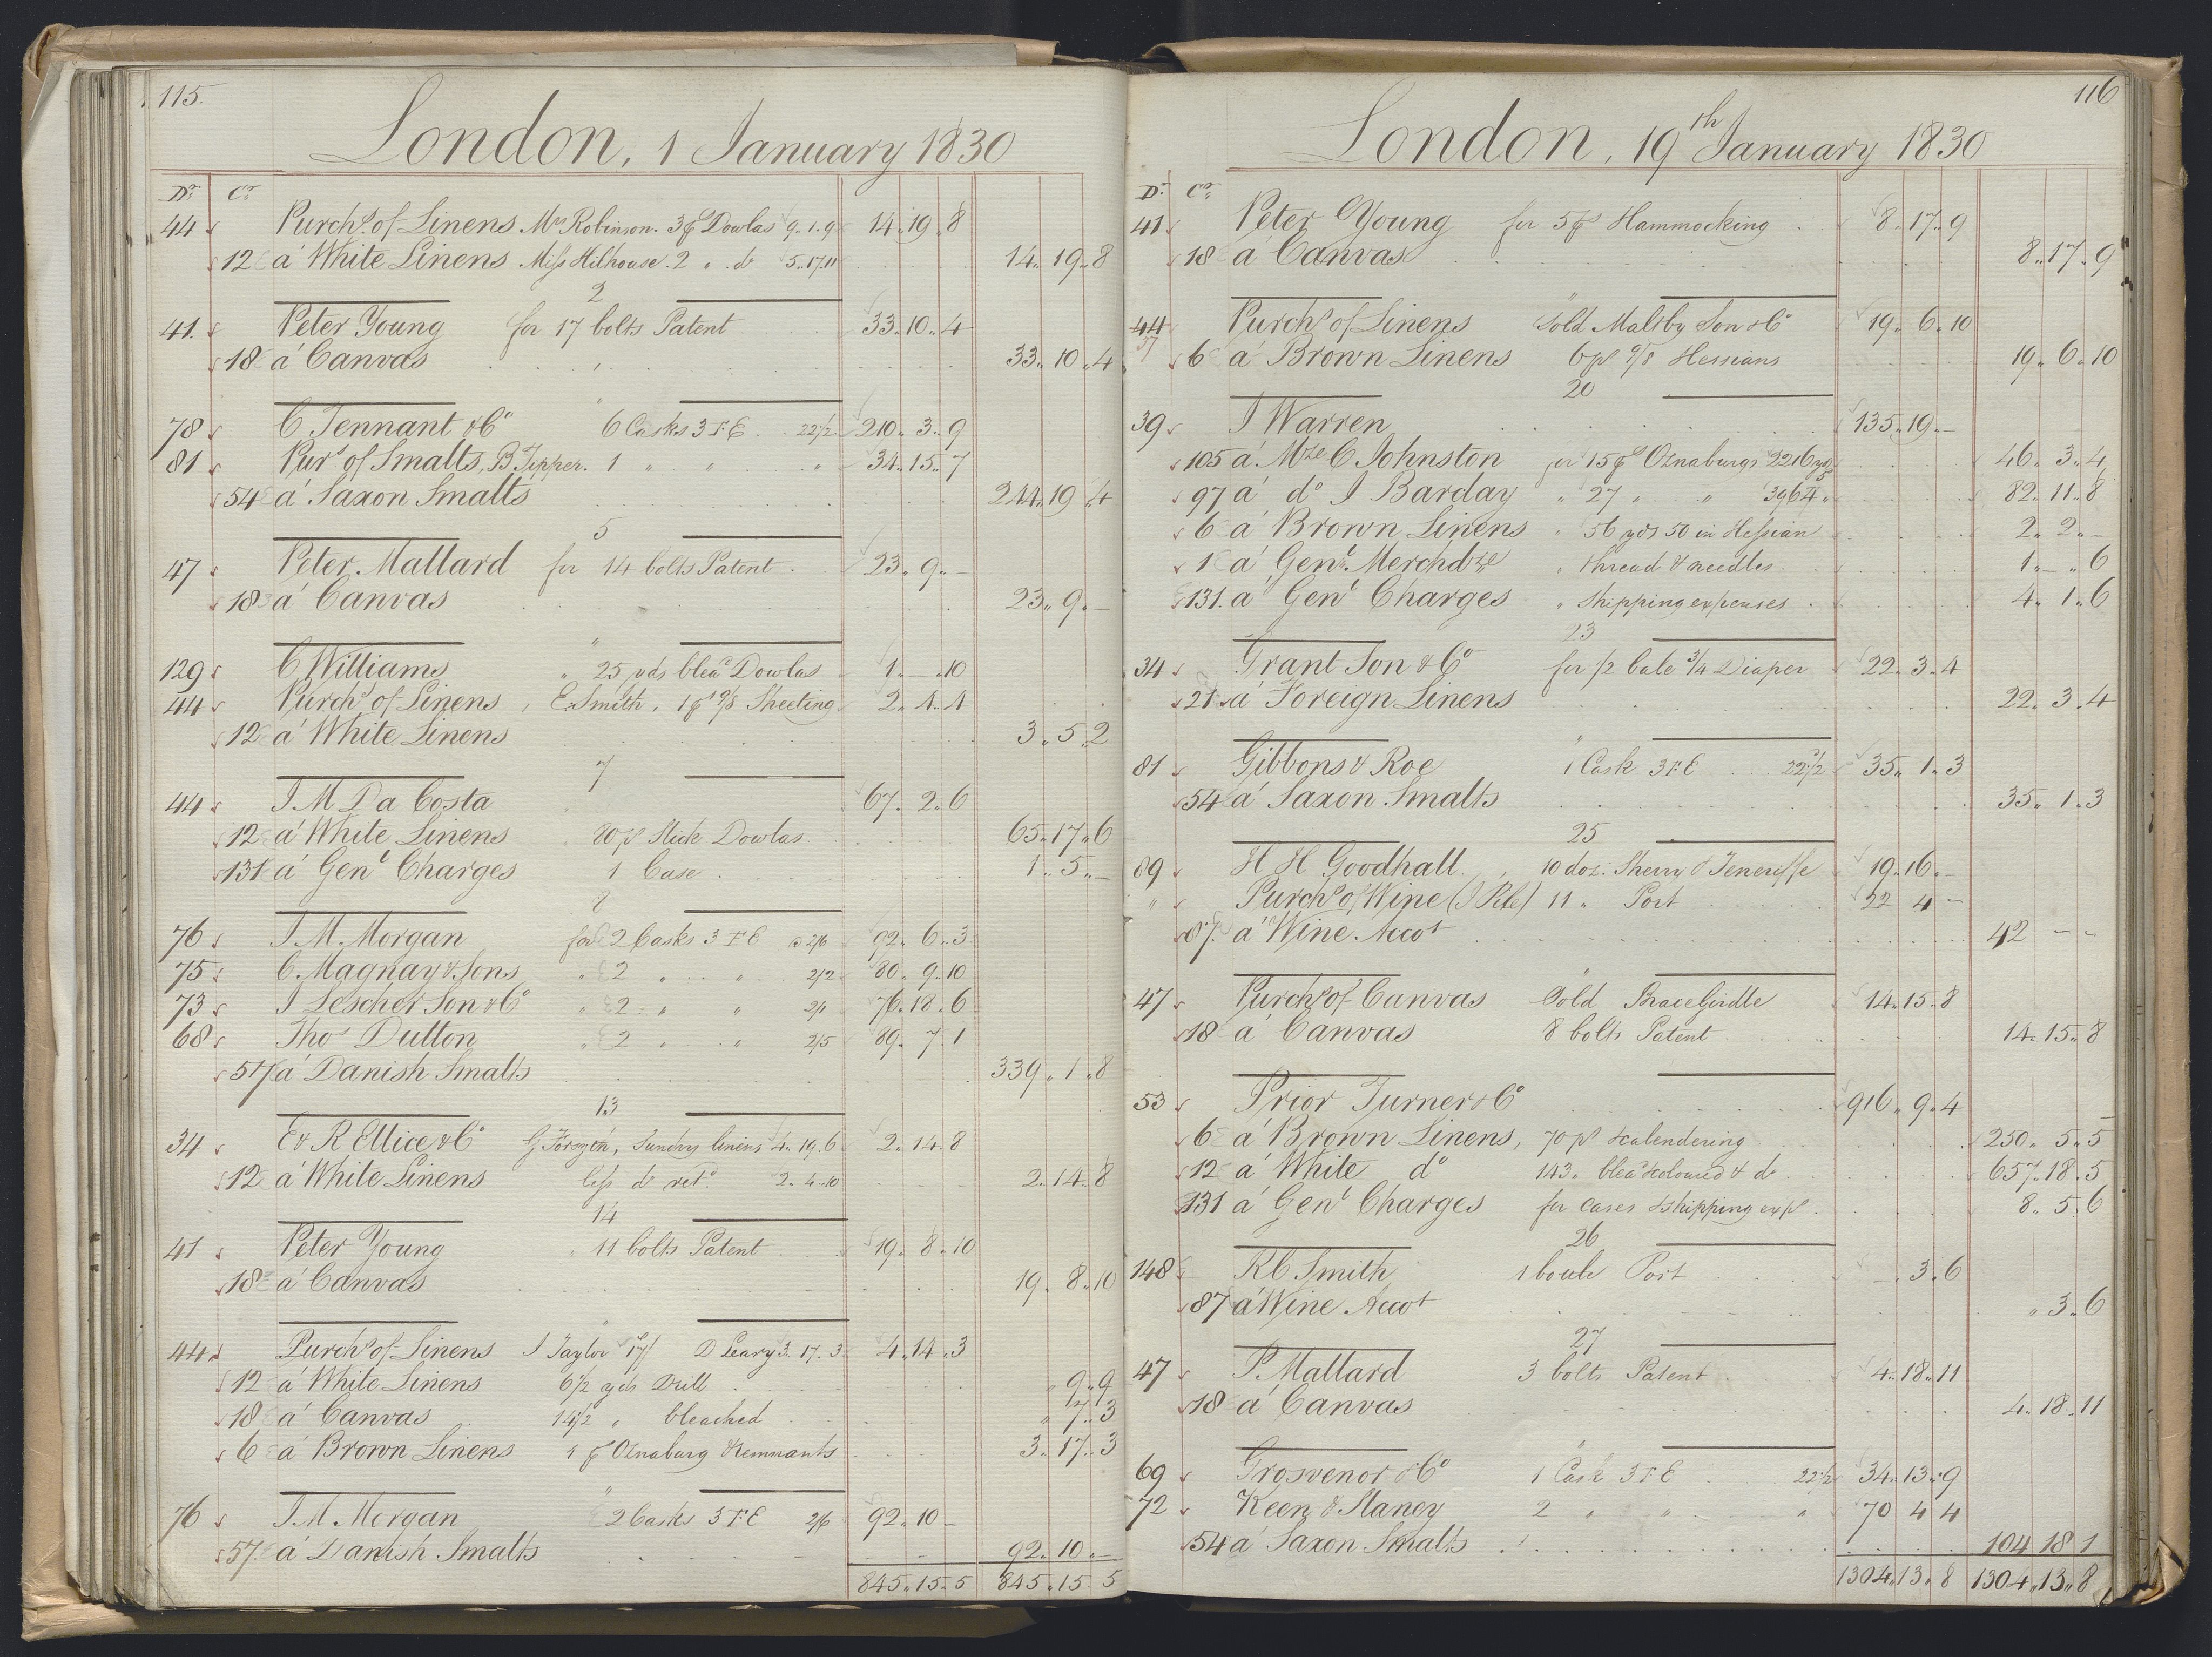 115.
London, 1 January 1830
Dr. Cr.
44 Purchs. of Linens Mrs Robinson. 3 ps Dowlas 9..1..9 14..19..8
12 á White Linens Miss Hilhouse. 2 " do 5..17..11 14..19..8
2
41. Peter Young for 17 bolts Patent 33..10..4
18 á Canvas 33..10..4
"
78 C Tennant & Co 6 Casks 3 F E 22½ 210..3..9
81 Purs of Smalts, B Tipper. 1 " " " 34..15..7
54 á Saxon Smalts 244..19..4
5
47 Peter Mallard for 14 bolts Patent 23..9..—
18 á Canvas 23..9..—
"
129 C Williams " 25 yds blead Dowlas 1..—..10
44 Purchs of Linens, E Smith, 1 ps 9/8 Sheeting 2..4..4
12 á White Linens 3..5..2
7
44 J. M Da Costa 67..2..6
12 á White Linens 20 ps Slick Dowlas 65..17..6
131 á Genl Charges 1 Case 1..5..—
8
76 J. M. Morgan for 2 Casks 3 F E @ 2/6 92..6..3
75 C. Magnay & Sons " 2 " " 2/2 80..9..10
73 J Lescher Son & Co " 2 " " 2/1 76..18..6
68 Thos Dutton " 2 " " 2/5 89..7..1
57 á Danish Smalts 339..1..8
13
34 E & R Ellice & Co G Forsyth, Sundry linens 4..19..6 2..14..8
12 á White Linens less do retd. 2..4..10 2..14..8
14
41 Peter Young " 11 bolts Patent 19..8..10
18 á Canvas 19..8..10
"
44 Purchs of Linens J Taylor 17/ D Leary 3..17..3 4..14..3
12 á White Linens 6½ yds Drill "..9..9
18 á Canvas 14½ " bleached "..7..3
6 á Brown Linens 1 ps Oznaburg & remnants 3..17..3
"
76 J. M. Morgan 2 Casks 3 F E 2/6 92..10—
57 á Danish Smalts 92..10..—
845..15..5 845..15..5
116
London, 19th January 1830
Dr. Cr.
41 Peter Young for 5 ps Hammocking 8..17..9
18 á Canvas 8..17..9
"
44 Purchs of Linens Sold Maltby Son & Co 19..6..10
37
6 á Brown Linens 6 ps 9/8 Hessians 19..6..10
20
39 J Warren 135..19..—
105 á Mze C Johnston for 15 ps Oznaburgs 2216 yds 46..3..4
97 á do J Barclay " 27 " " 3964 " 82..11..8
6 á Brown Linens " 56 yds 50 in Hessian 2..2..—
1 á Genl. Merchdze " thread & needles 1..—..6
131. á Genl Charges " Shipping expenses 4..1..6
23
34 Grant Son & Co for ½ bale ¾ Diaper 22..3..4
21 á Foreign Linens 22..3..4
"
81 Gibbons & Roe 1 Cask 3 F E 22½ 35..1..3
54 á Saxon Smalts 35..1..3
25
89 H H Goodhall, 10 doz: Sherry & Teneriffe 19..16..—
" Purchs of Wine (J Pile) 11 " Port 22 4 —
87. á Wine Accot 42 — —
"
47 Purchs of Canvas Sold Bracegirdle 14..15..8
18 á Canvas 8 bolts Patent 14..15..8
53 Prior Turner & Co 916..9..4
6 á Brown Linens, 70 ps & calendering 250..5..5
12 á White do 143 " blead & coloured & do 657..18..5
131 á Genl Charges for cases & shipping exps 8..5..6
26
148 R C Smith 1 bottle Port —..3..6
87 á Wine Accot "..3..6
27
47 P. Mallard 3 bolts Patent 4..18..11
18 á Canvas 4..18..11
"
69 Grosvenor & Co 1 Cask 3 F E 22½ 34..13..9
72 Keen & Slaney 2 " " " 70 4 4
54 á Saxon Smalts 104 18 1
1304..13..8 1304..13..8